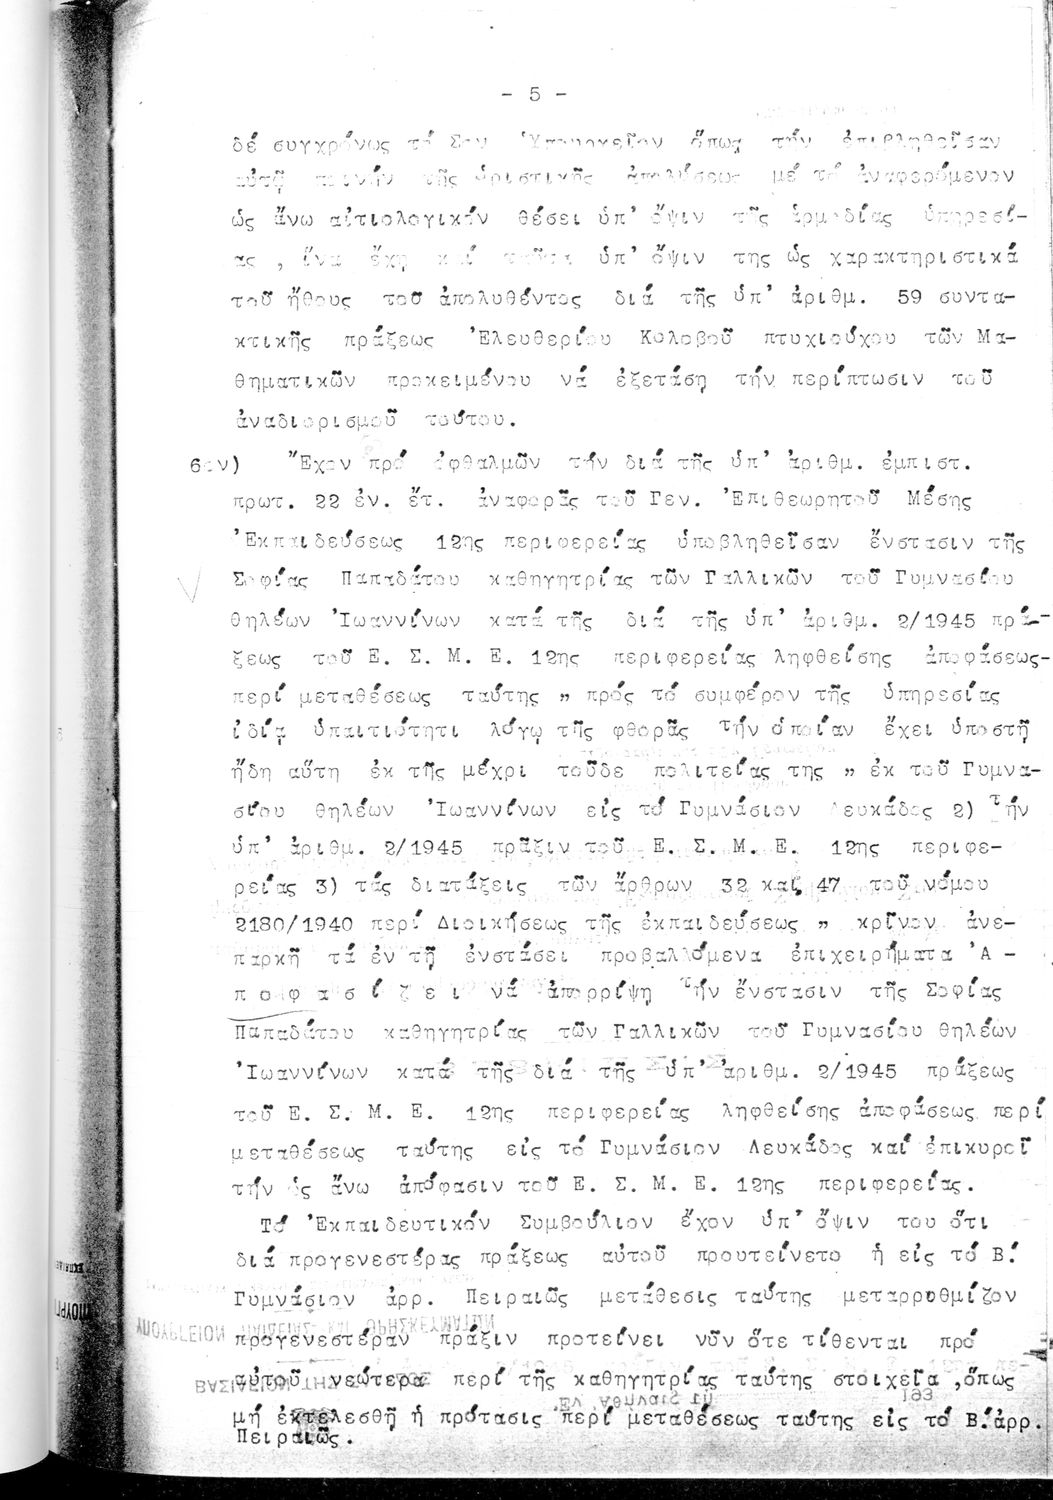 - 5 -
δέ συγχρόνως τό Σον Ὑπουργεῖον ὅπως τήν ἐπιβληθεῖσαν
αὐτῷ ποινήν τῆς ὁριστικῆς ἀπολύσεως μέ τό ἀναφερόμενον
ὡς ἄνω αἰτιολογικόν θέσει ὑπ' ὄψιν τῆς ἁρμοδίας ὑπηρεσί-
ας , ἵνα ἔχῃ καί ταῦτα ὑπ' ὄψιν της ὡς χαρακτηριστικά
τοῦ ἤθους τοῦ ἀπολυθέντος διά τῆς ὑπ' ἀριθμ. 59 συντα-
κτικῆς πράξεως Ἐλευθερίου Κολοβοῦ πτυχιούχου τῶν Μα-
θηματικῶν προκειμένου νά ἐξετάσῃ τήν περίπτωσιν τοῦ
ἀναδιορισμοῦ τούτου.
6ον) Ἔχον πρό ὀφθαλμῶν τήν διά τῆς ὑπ' ἀριθμ. ἐμπιστ.
πρωτ. 22 ἐν. ἔτ. ἀναφορᾶς τοῦ Γεν. Ἐπιθεωρητοῦ Μέσης
Ἐκπαιδεύσεως 12ης περιφερείας ὑποβληθεῖσαν ἔνστασιν τῆς
Σοφίας Παπαδάτου καθηγητρίας τῶν Γαλλικῶν τοῦ Γυμνασίου
θηλέων Ἰωαννίνων κατά τῆς διά τῆς ὑπ' ἀριθμ. 2/1945 πρά-
ξεως τοῦ Ε. Σ. Μ. Ε. 12ης περιφερείας ληφθείσης ἀποφάσεως-
περί μεταθέσεως ταύτης " πρός τό συμφέρον τῆς ὑπηρεσίας
ἰδίᾳ ὑπαιτιότητι λόγῳ τῆς φθορᾶς τήν ὁποίαν ἔχει ὑποστῆ
ἤδη αὕτη ἐκ τῆς μέχρι τοῦδε πολιτείας της " ἐκ τοῦ Γυμνα-
σίου θηλέων Ἰωαννίνων εἰς τό Γυμνάσιον Λευκάδος 2) Τήν
ὑπ' ἀριθμ. 2/1945 πρᾶξιν τοῦ Ε. Σ. Μ. Ε. 12ης περιφε-
ρείας 3) τάς διατάξεις τῶν ἄρθρων 32 καί 47 τοῦ νόμου
2180/1940 περί Διοικήσεως τῆς ἐκπαιδεύσεως " κρῖνον ἀνε-
παρκῆ τά ἐν τῇ ἐνστάσει προβαλλόμενα ἐπιχειρήματα Ἀ -
π ο φ α σ ί ζ ε ι νά ἀπορρίψῃ Τήν ἔνστασιν τῆς Σοφίας
Παπαδάτου καθηγητρίας τῶν Γαλλικῶν τοῦ Γυμνασίου θηλέων
Ἰωαννίνων κατά τῆς διά τῆς ὑπ' ἀριθμ. 2/1945 πράξεως
τοῦ Ε. Σ. Μ. Ε. 12ης περιφερείας ληφθείσης ἀποφάσεως περί
μεταθέσεως ταύτης εἰς τό Γυμνάσιον Λευκάδος καί ἐπικυροῖ
τήν ὡς ἄνω ἀπόφασιν τοῦ Ε. Σ. Μ. Ε. 12ης περιφερείας.
Τό Ἐκπαιδευτικόν Συμβούλιον ἔχον ὑπ' ὄψιν του ὅτι
διά προγενεστέρας πράξεως αὐτοῦ προυτείνετο ἡ εἰς τό Β΄
Γυμνάσιον ἀρρ. Πειραιῶς μετάθεσις ταύτης μεταρρυθμίζον
προγενεστέραν πρᾶξιν προτείνει νῦν ὅτε τίθενται πρό
αὐτοῦ νεώτερα περί τῆς καθηγητρίας ταύτης στοιχεῖα ,ὅπως
μή ἐκτελεσθῇ ἡ πρότασις περί μεταθέσεως ταύτης εἰς τό Β΄ἀρρ.
Πειραιῶς.